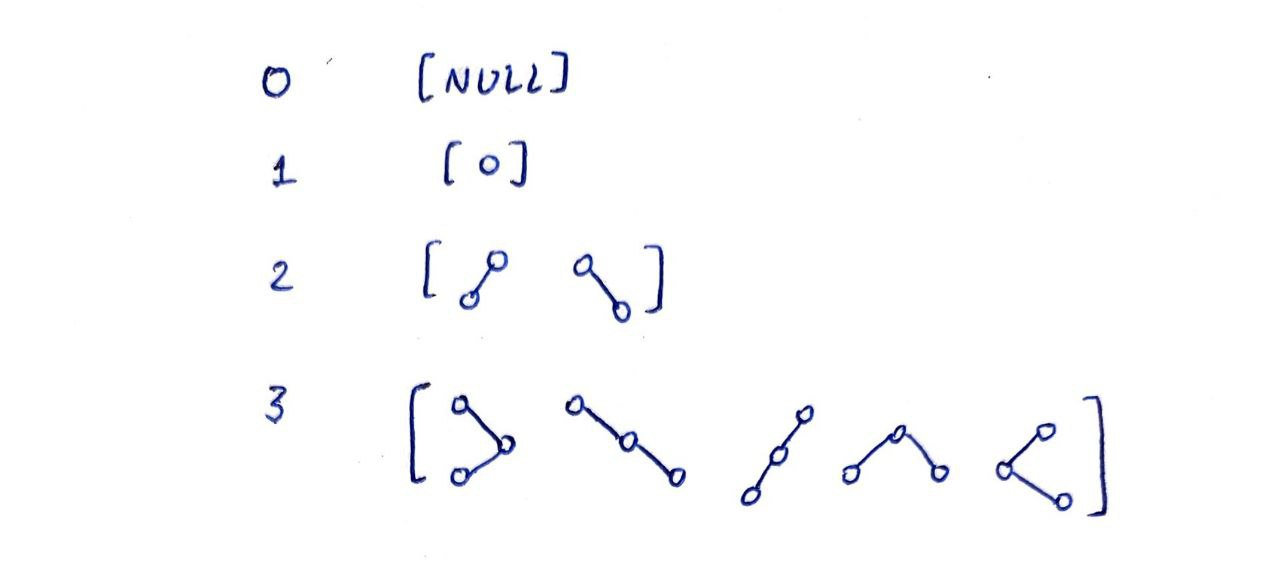 0 [NULL]
1 [0]
2 [ ]
3 [ ]